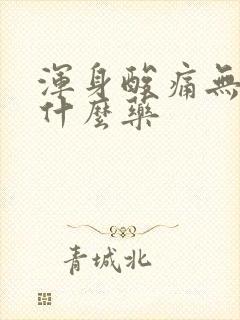 渾身酸痛無
什麼藥
青城北